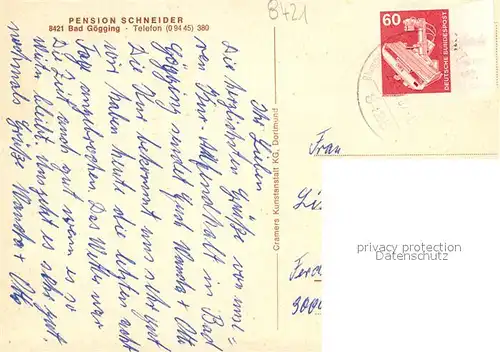 PENSION SCHNEIDER
8421 Bad Gögging - Telefon (0 94 45) 380
8421
60
DEUTSCHE BUNDESPOST
Ihr Lieben
Die herzlichsten Grüße von unse=
ren Kur-Aufenthalt in Bad
Gögging sendet Euch Wanda + Otto
Die Kur bekommt uns sehr gut
wir haben heute die letzten acht
Tag angebrochen. Das Wetter war
die Zeit auch gut wenn es so
weiter bleibt uns geht es sehr gut.
nochmals Grüße Wanda + Otto
Cramers Kunstanstalt KG, Dortmund
Frau
privacy protection
Datenschutz